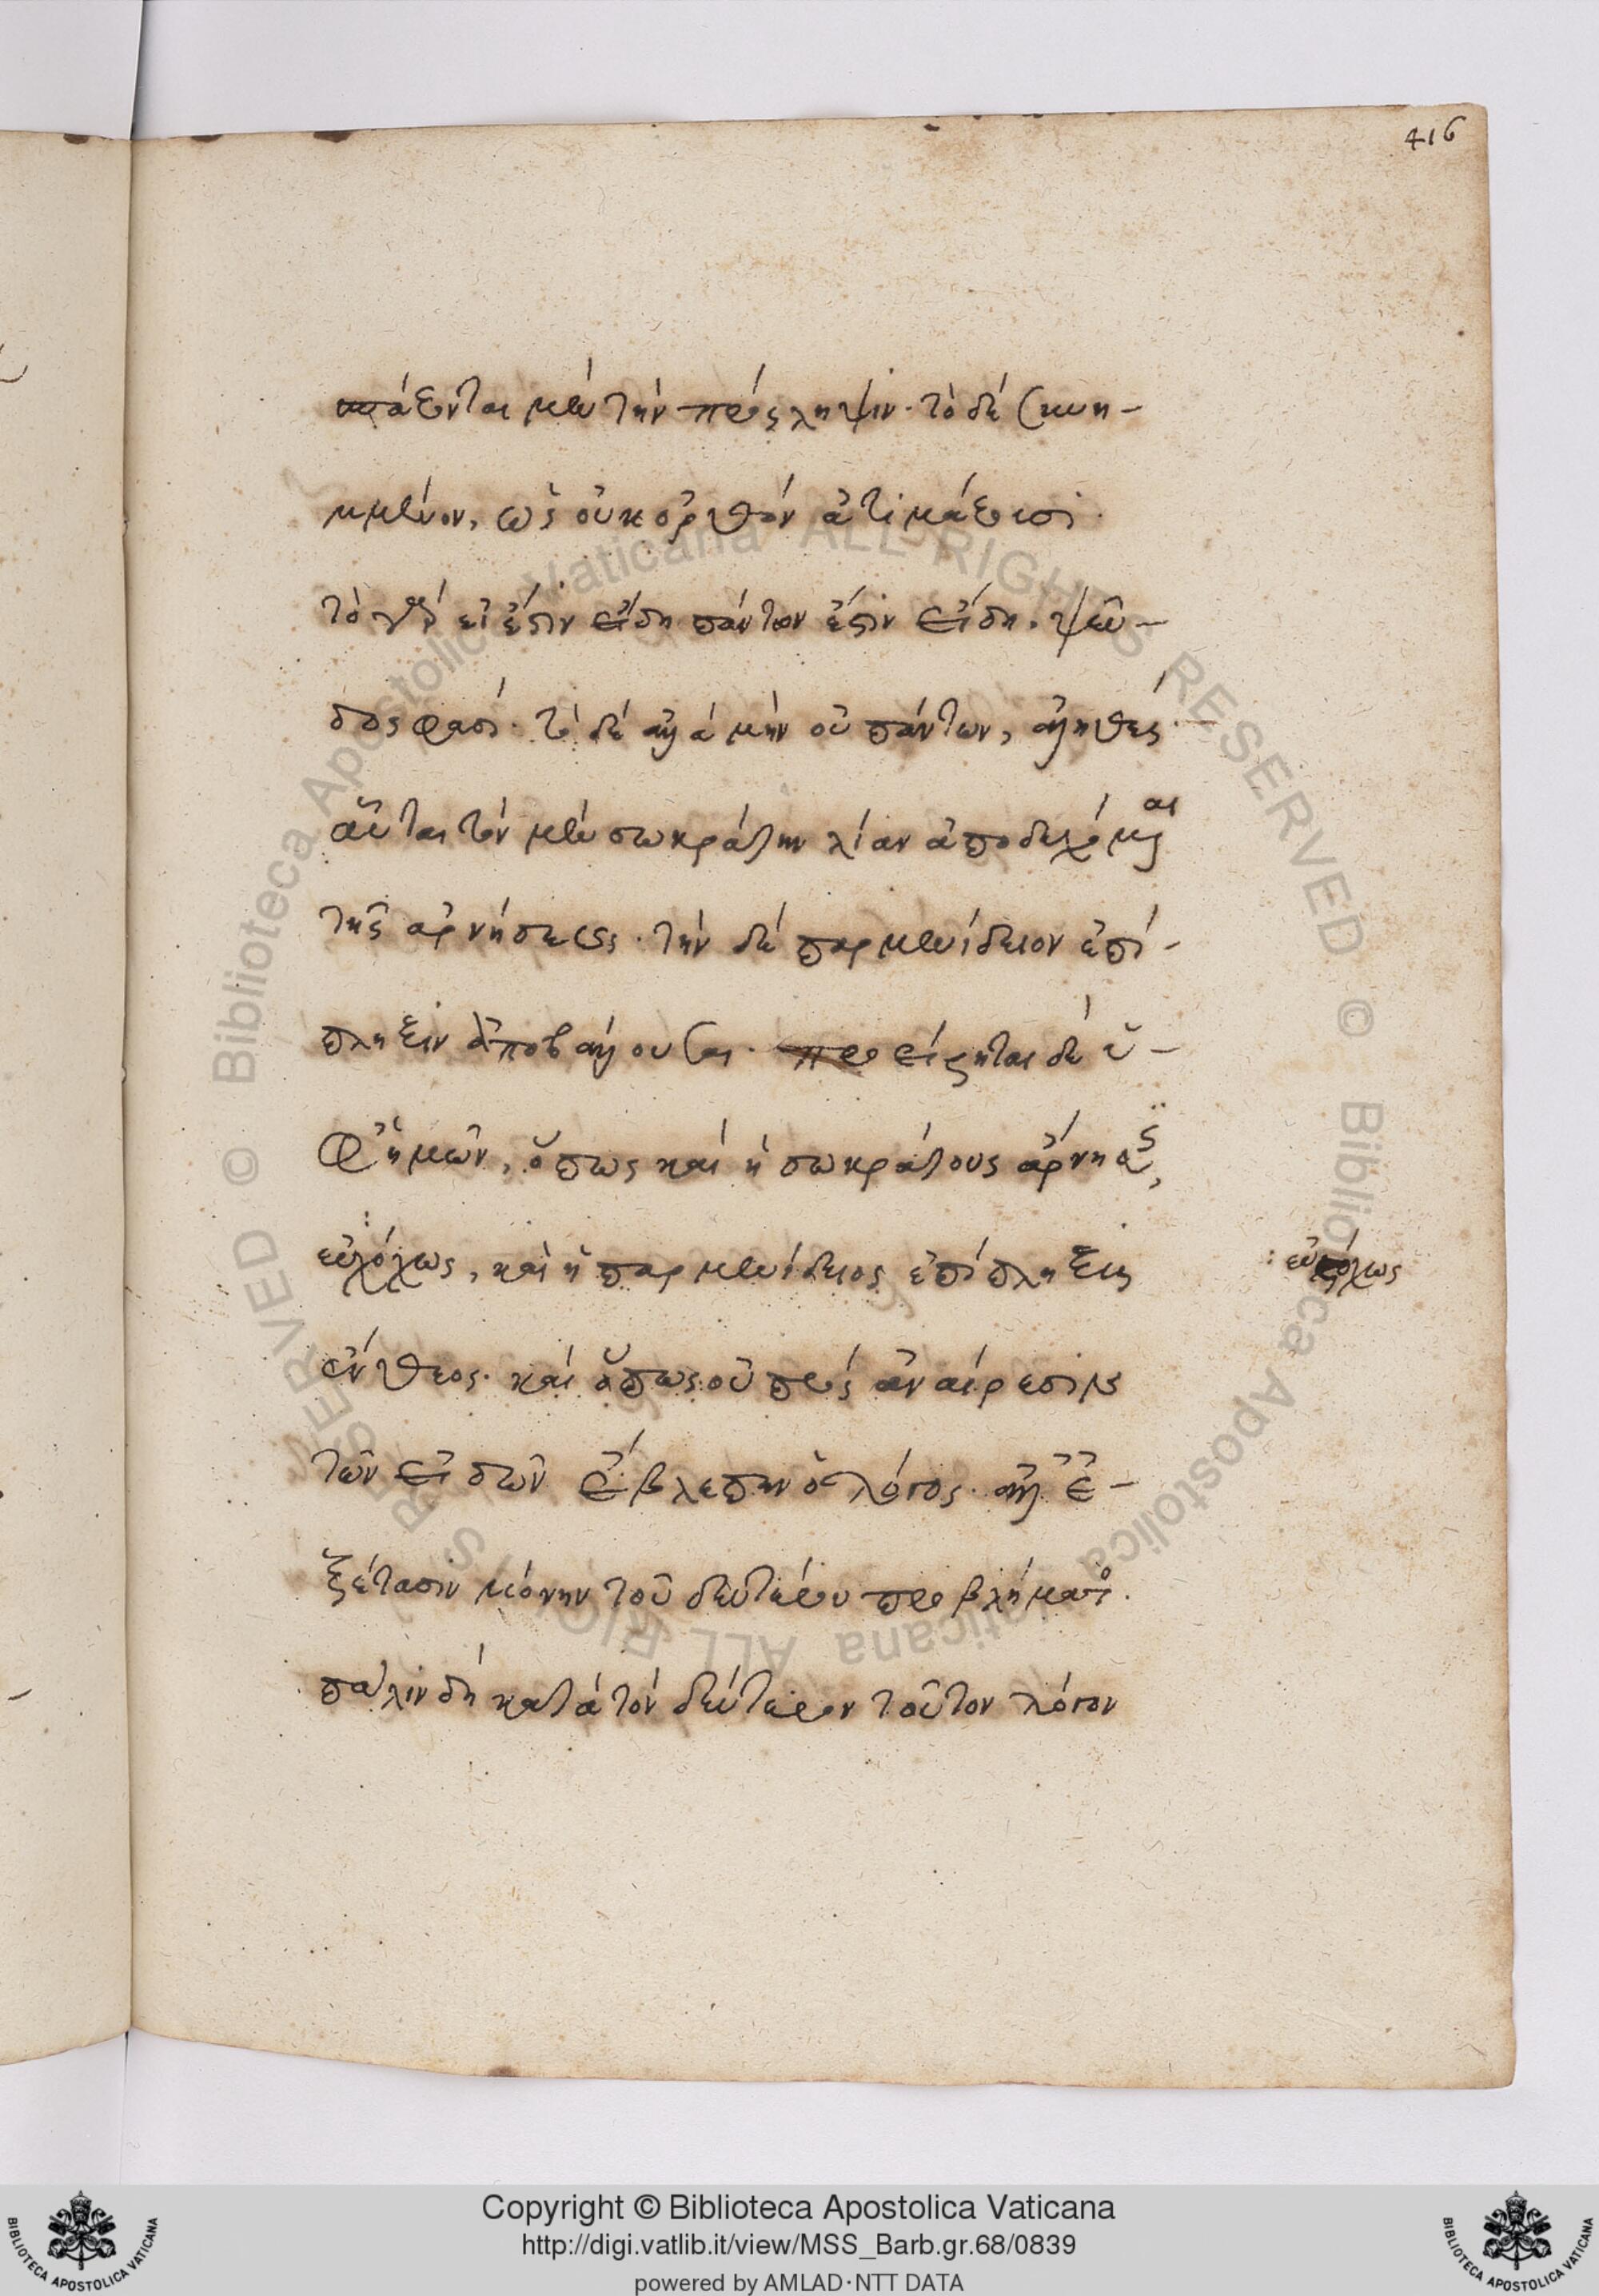 416
πράξονται μὲν τὴν πρόςληψιν· τὸ δὲ συνη-
μμένον, ὡς οὐκ ὀρθὸν ἀτιμάζουσι·
τὸ γὰρ εἰ ἔστιν εἴδη πάντων ἔστιν εἴδη, ψεῦ-
δος φασί· τὸ δὲ ἀλλὰ μὴν οὐ πάντων, ἀληθές·
αὗται τὸν μὲν σωκράτην λίαν ἀποδεχόμεναι
τῆς ἀρνήσεως· τὴν δὲ παρμενίδειον ἐπί-
πληξιν ἀποβάλλουσαι· προείρηται δὲ ὑ-
φ' ἡμῶν, ὅπως καὶ ἡ σωκράτους ἄρνησις,
εὐλόγως, καὶ ἡ παρμενίδειος ἐπίπληξις
: εὐλόγως
ἔνθεος· καὶ ὅπως οὐ πρὸς ἀναίρεσιν
τῶν εἰδῶν ἔβλεπεν ὁ λόγος· ἀλλ' ἐ-
ξέτασιν μόνην τοῦ δευτέρου προβλήματος·
πάλιν δὴ κατὰ τὸν δεύτερον τοῦτον λόγον
© Biblioteca Apostolica Vaticana ALL RIGHTS RESERVED
Copyright © Biblioteca Apostolica Vaticana
http://digi.vatlib.it/view/MSS_Barb.gr.68/0839
powered by AMLAD·NTT DATA
BIBLIOTECA APOSTOLICA VATICANA
BIBLIOTECA APOSTOLICA VATICANA